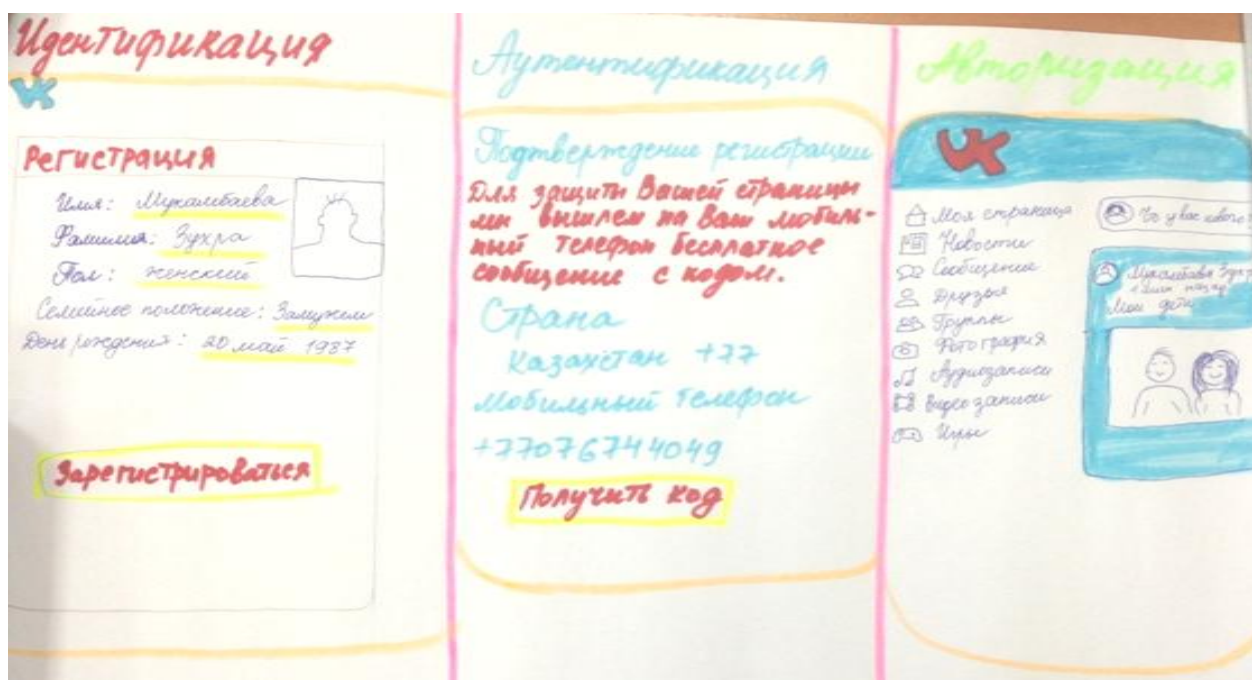 Идентификация
VK
Регистрация
Имя: Мукамбаева
Фамилия: Зухра
Пол: женский
Семейное положение: Замужем
День рождения: 20 май 1987
Зарегистрироваться
Аутентификация
Подтверждение регистрации
Для защиты Вашей страницы
мы вышлем на Ваш мобиль-
ный телефон бесплатное
сообщение с кодом.
Страна
Казахстан +77
Мобильный телефон
+77076744049
Получить код
Авторизация
VK
Моя страница
Новости
Сообщение
Друзья
Группы
Фотография
Аудиозаписи
Видео записи
Игры
Что у вас нового
Мукамбаева Зухра
назад
Мои дети